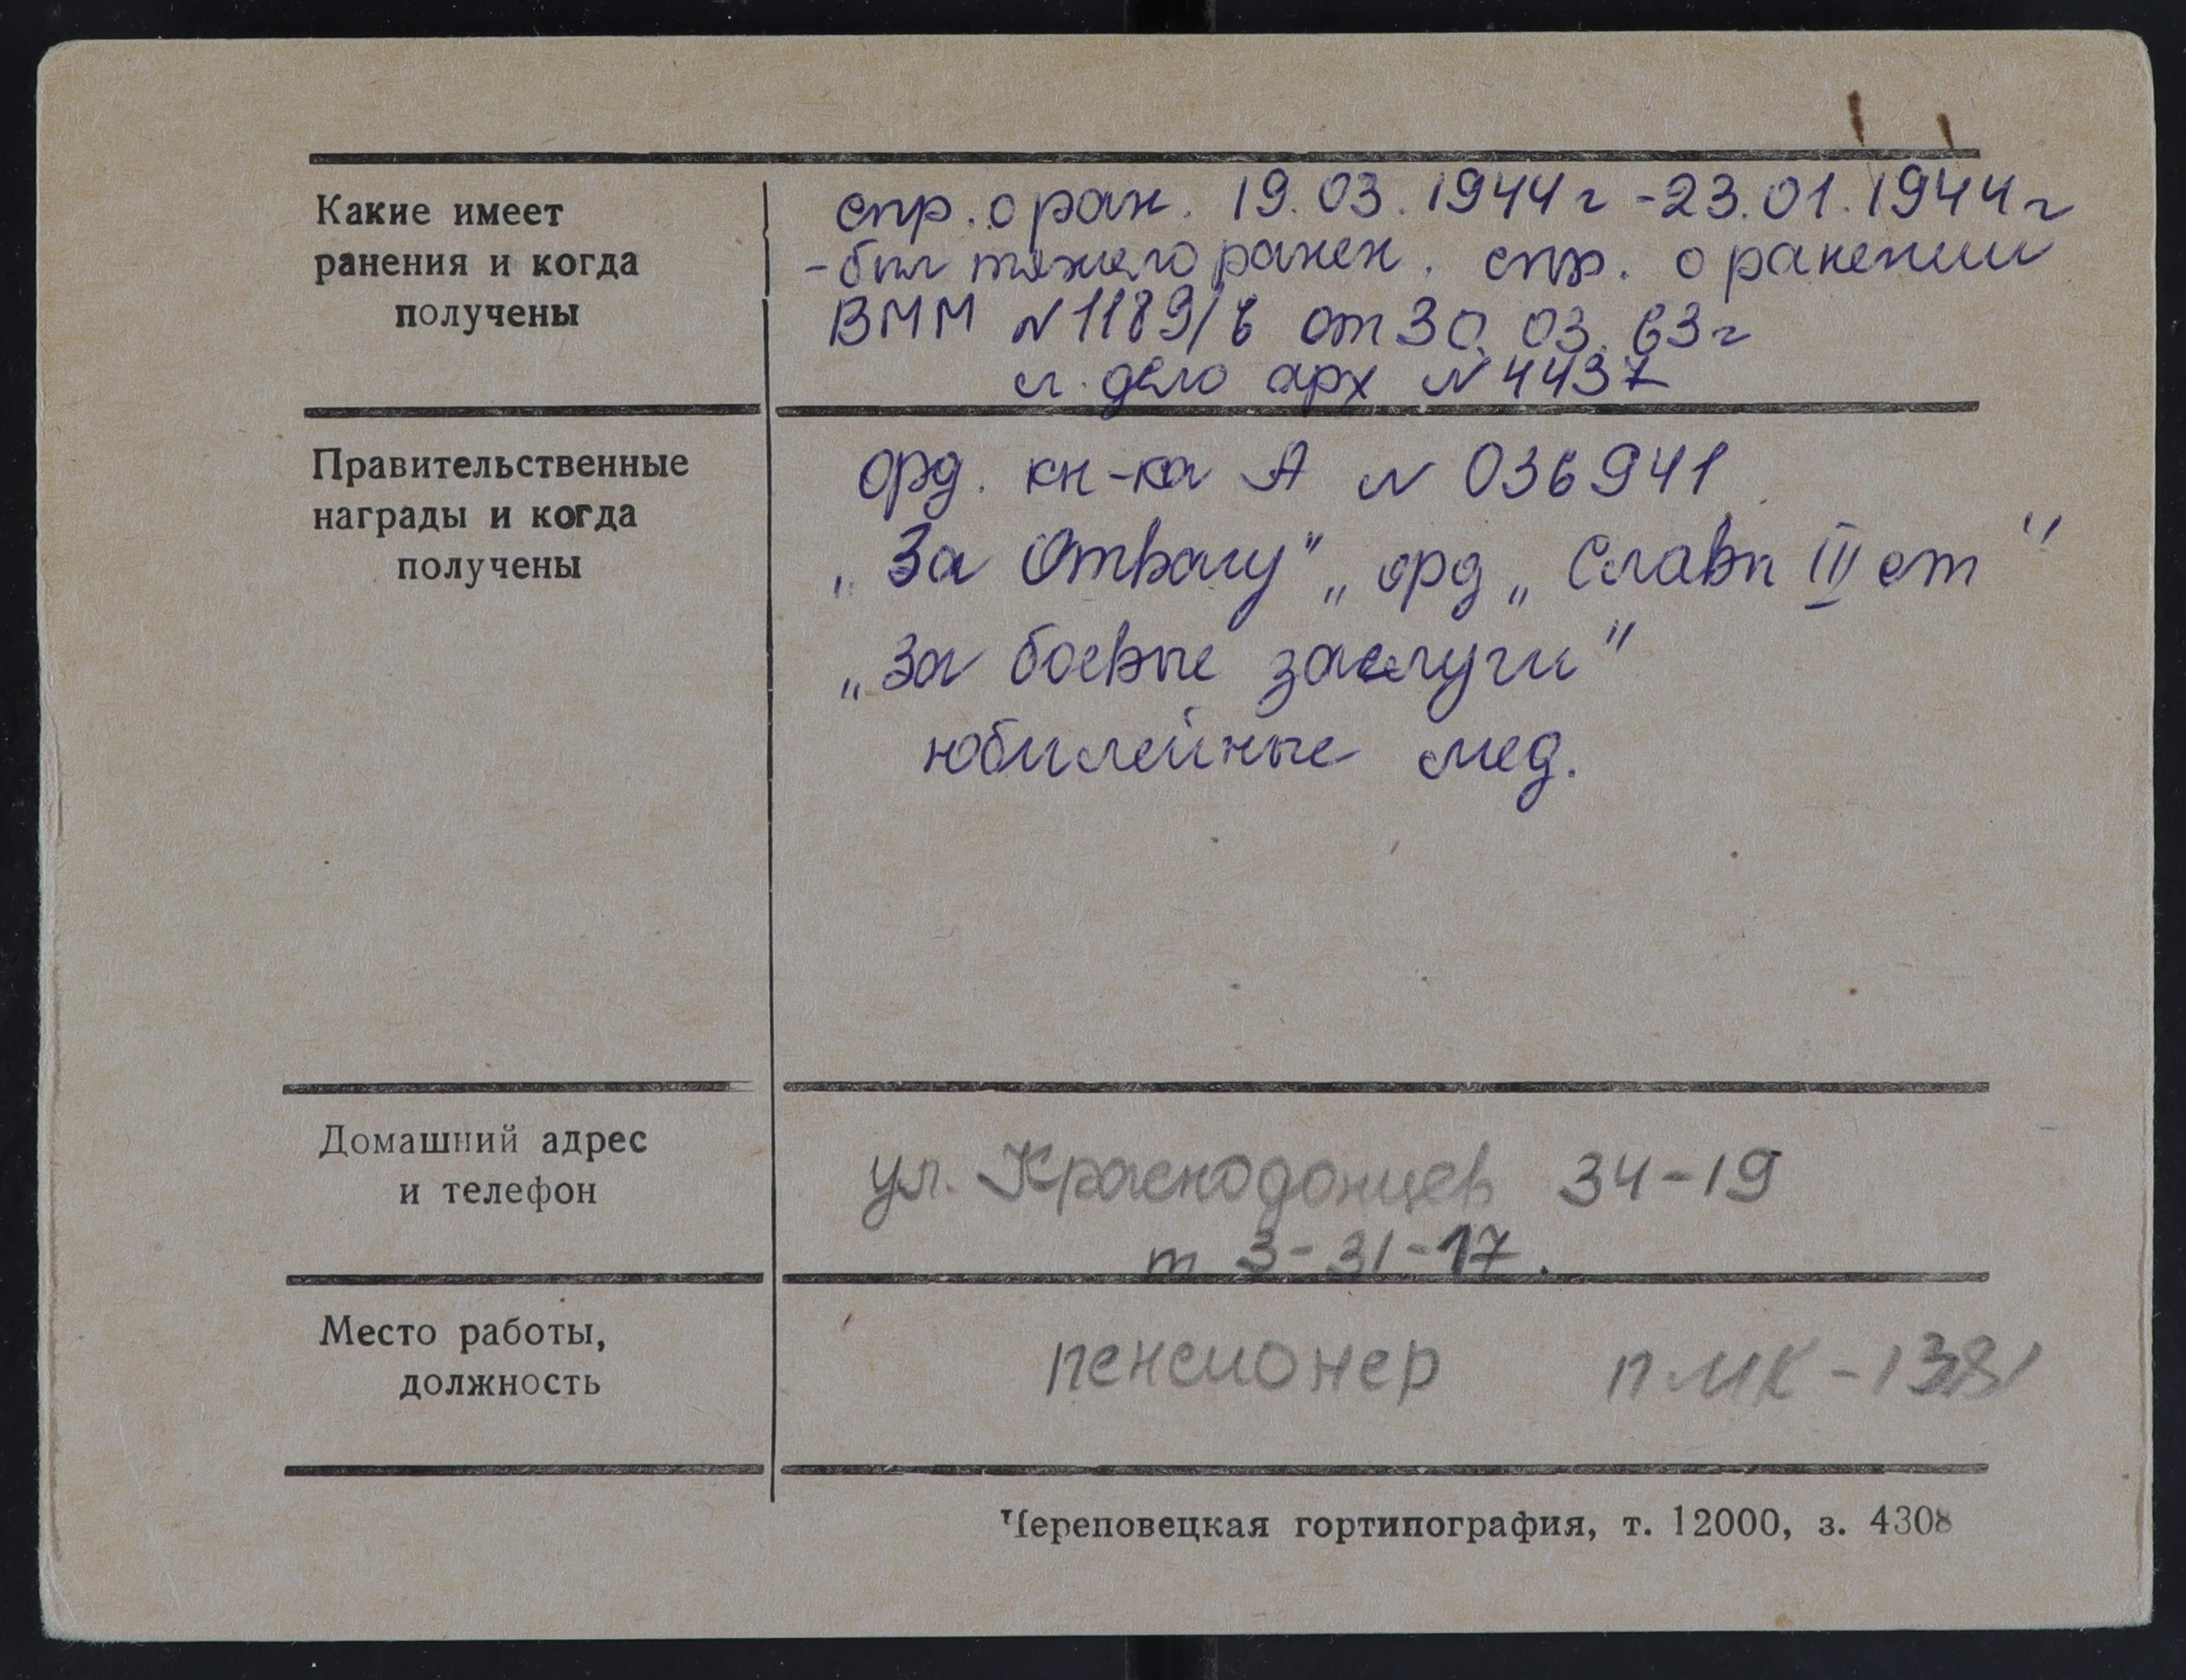 Какие имеет
ранения и когда
получены
спр. о ран. 19.03.1944 г - 23.01.1944 г
- был тяжело ранен. спр. о ранении
ВММ N 1189/8 от 30.03.63 г
л. дело арх N 4437
Правительственные
награды и когда
получены
орд. кн-ка А N 036941
„За Отвагу" „ орд „ Славы III ст "
„За боевые заслуги"
юбилейные мед.
Домашний адрес
и телефон
ул. Краснодонцев 34-19
т 3-31-17.
Место работы,
должность
пенсионер ПМК-1381
Череповецкая гортипография, т. 12000, з. 4308